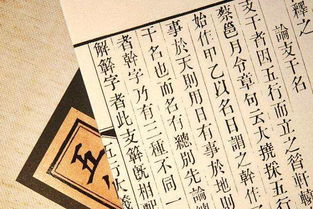 釋之
論支干名
支干者因五行而立之昔軒
蔡邕月令章句云大撓採五行
始作甲乙以名日謂之幹作
事於天則用日有事於地則
干名也而名有總別先論總
者幹字乃有三種不同一
字者此支辭旣相配
五行大義
五